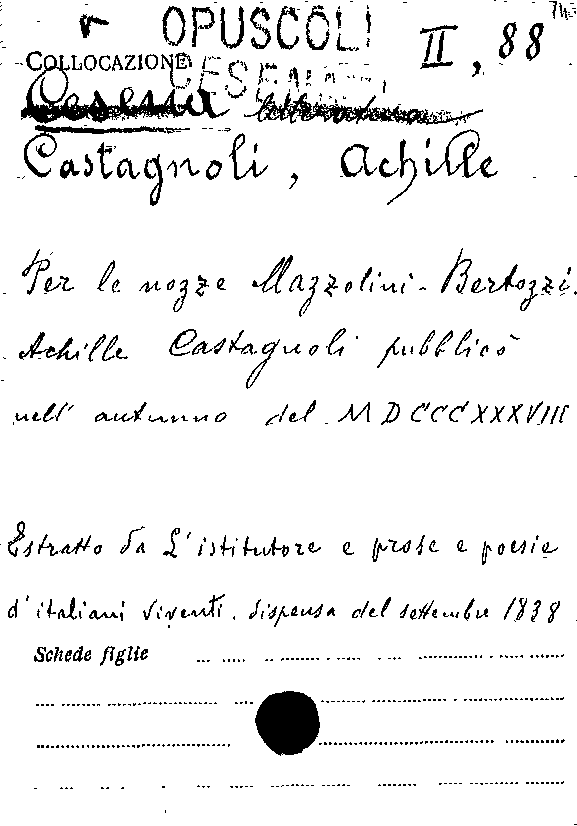 743
OPUSCOLI II, 88
COLLOCAZIONE CESENA
Cesena
Castagnoli, Achille
Per le nozze Mazzolini-Bertozzi.
Achille Castagnoli pubblicò
nell' autunno del MDCCCXXXVIII
Estratto da L'istitutore e prose e poesie
d'italiani viventi. dispensa del settembre 1838.
Schede figlie